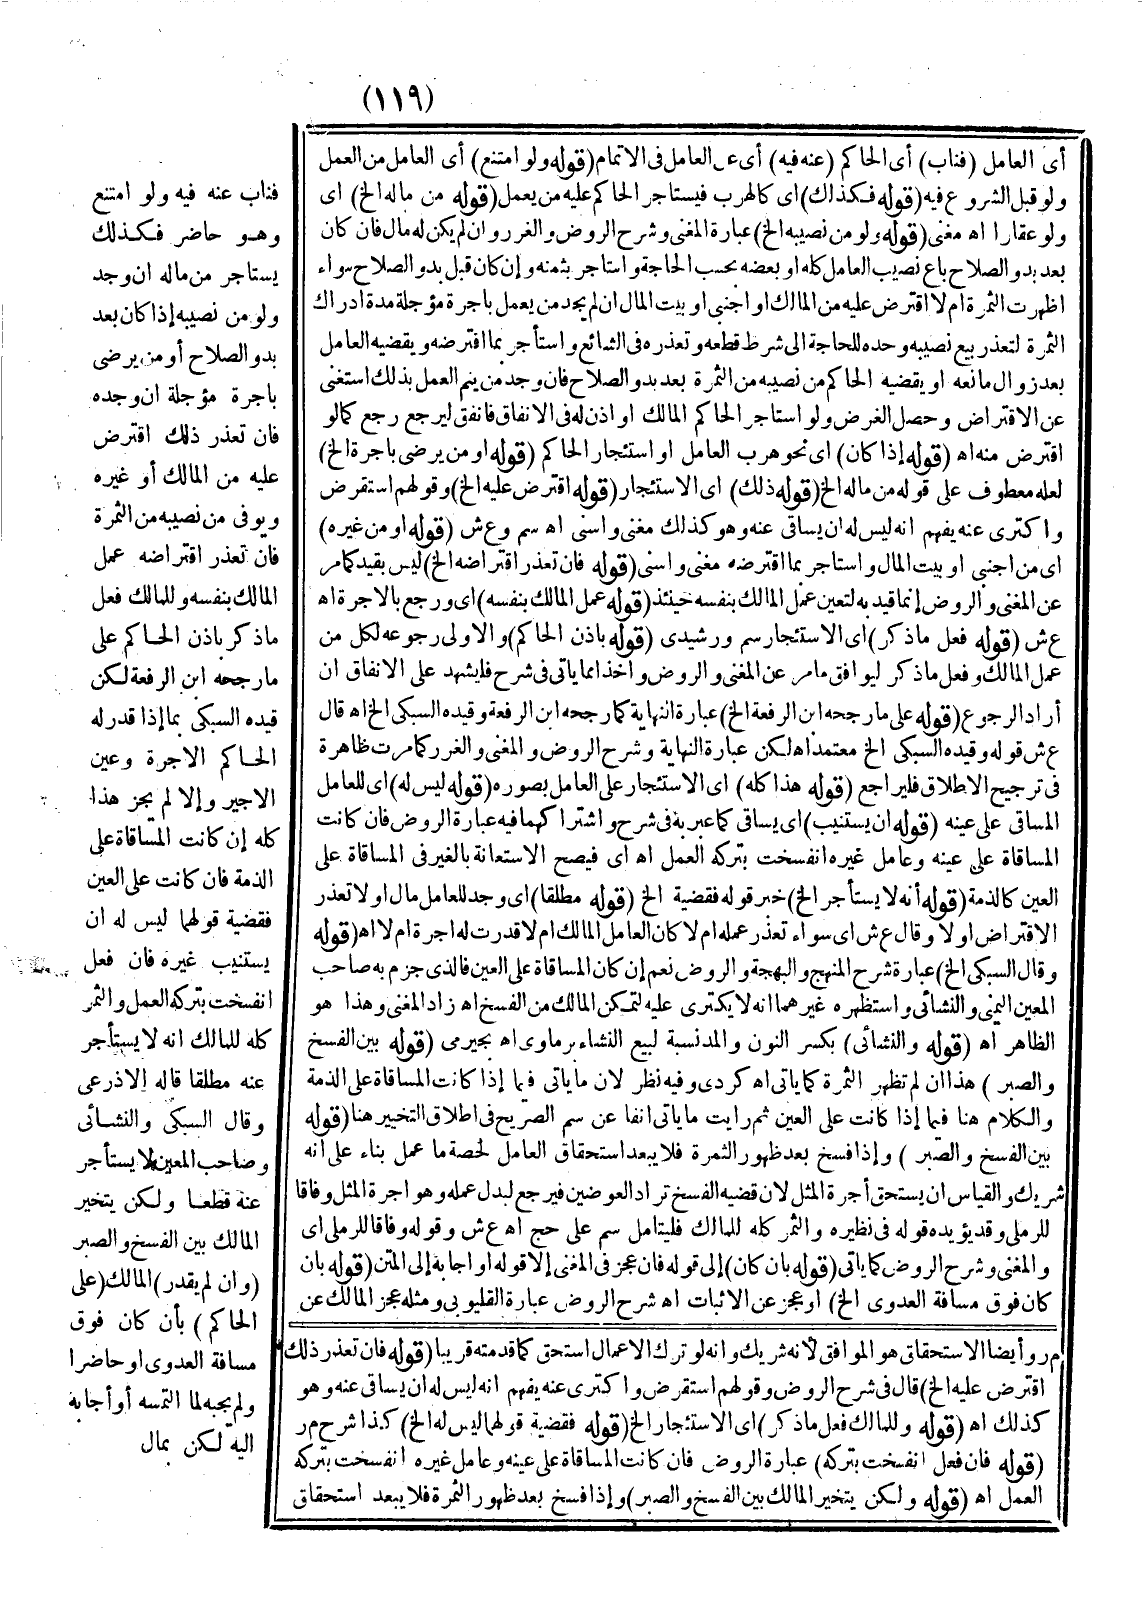 (١١٩)
أى العامل (فناب) أى الحاكم (عنه فيه) أى عن العامل فى الاتمام (قوله ولو امتنع) أى العامل من العمل
ولو قبل الشروع فيه (قوله فكذلك) اى كالهرب فيستاجر الحاكم عليه من يعمل (قوله من ماله الخ) اى
ولو عقارا اه مغنى (قوله ولو من نصيبه الخ) عبارة المغنى وشرح الروض والغرر وان لم يكن له مال فان كان
بعد بدو الصلاح باع نصيب العامل كله او بعضه بحسب الحاجة واستاجر بثمنه وإن كان قبل بدو الصلاح سواء
اظهرت الثمرة ام لا اقترض عليه من المالك او اجنبى او بيت المال ان لم يجد من يعمل باجرة مؤجلة مدة ادراك
الثمرة لتعذر بيع نصيبه وحده للحاجة الى شرط قطعه وتعذره فى الشائع واستأجر بما اقترضه ويقضيه العامل
بعد زوال مانعه او يقضيه الحاكم من نصيبه من الثمرة بعد بدو الصلاح فان وجد من يتم العمل بذلك استغنى
عن الاقتراض وحصل الغرض ولو استاجر الحاكم المالك او اذن له فى الانفاق فانفق ليرجع رجع كما لو
اقترض منه اه (قوله إذا كان) اى نحو هرب العامل او استئجار الحاكم (قوله او من يرضى باجرة الخ)
لعله معطوف على قوله من ماله الخ (قوله ذلك) اى الاستئجار (قوله اقترض عليه الخ) وقولهم استقرض
واكترى عنه يفهم انه ليس له ان يساقى عنه وهو كذلك مغنى واسنى اه سم وع ش (قوله او من غيره)
اى من اجنبى او بيت المال واستاجر بما اقترضه مغنى واسنى (قوله فان تعذر اقتراضه الخ) ليس بقيد كما مر
عن المغنى والروض إنما قيد به لتعين عمل المالك بنفسه حينئذ (قوله عمل المالك بنفسه) اى ورجع بالاجرة اه
ع ش (قوله فعل ماذكر) اى الاستئجار سم ورشيدى (قوله باذن الحاكم) والاولى رجوعه لكل من
عمل المالك وفعل ماذكر ليوافق مامر عن المغنى والروض واخذا مما ياتى فى شرح فليشهد على الانفاق ان
أراد الرجوع (قوله على مارجحه ابن الرفعة الخ) عبارة النهاية كما رجحه ابن الرفعة وقيده السبكى الخ اه قال
ع ش قوله وقيده السبكى الخ معتمد اه لكن عبارة النهاية وشرح الروض والمغنى والغرر كما مرت ظاهرة
فى ترجيح الاطلاق فليراجع (قوله هذا كله) اى الاستئجار على العامل بصوره (قوله ليس له) اى للعامل
المساقى على عينه (قوله ان يستنيب) اى يساقى كما عبر به فى شرح واشتراكهما فيه عبارة الروض فان كانت
المساقاة على عينه وعامل غيره انفسخت بتركه العمل اه اى فيصح الاستعانة بالغير فى المساقاة على
العين كالذمة (قوله أنه لا يستأجر الخ) خبر قوله فقضية الخ (قوله مطلقا) اى وجد للعامل مال او لا تعذر
الاقتراض او لا وقال ع ش اى سواء تعذر عمله ام لا كان العامل المالك ام لا قدرت له اجرة ام لا اه (قوله
وقال السبكى الخ) عبارة شرح المنهج والبهجة والروض نعم إن كان المساقاة على العين فالذى جزم به صاحب
المعين اليمنى والنشائى واستظهره غيرهما انه لا يكترى عليه لتمكن المالك من الفسخ اه زاد المغنى وهذا هو
الظاهر اه (قوله والنشائى) بكسر النون والمد نسبة لبيع النشاء برماوى اه بجيرمى (قوله بين الفسخ
والصبر) هذا ان لم تظهر الثمرة كما ياتى اه كردى وفيه نظر لان ماياتى فيما إذا كانت المساقاة على الذمة
والكلام هنا فيما إذا كانت على العين ثم رايت ماياتى انفا عن سم الصريح فى اطلاق التخيير هنا (قوله
بين الفسخ والصبر) وإذا فسخ بعد ظهور الثمرة فلا يبعد استحقاق العامل لحصة ما عمل بناء على انه
شريك والقياس ان يستحق أجرة المثل لان قضيه الفسخ تراد العوضين فيرجع لبدل عمله وهو اجرة المثل وفاقا
للرملى وقد يؤيده قوله فى نظيره والثمر كله للمالك فليتامل سم على حج اه ع ش وقوله وفاقا للرملى اى
والمغنى وشرح الروض كما ياتى (قوله بان كان) إلى قوله فان عجز فى المغنى إلا قوله او اجابة إلى المتن (قوله بان
كان فوق مسافة العدوى الخ) او عجز عن الاثبات اه شرح الروض عبارة القليوبى ومثله عجز المالك عن
م ر وأيضا الاستحقاق هو الموافق لأنه شريك وانه لو ترك الاعمال استحق كما قدمته قريبا (قوله فان تعذر ذلك
اقترض عليه الخ) قال فى شرح الروض وقولهم استقرض واكترى عنه يفهم انه ليس له ان يساقى عنه وهو
كذلك اه (قوله وللمالك فعل ماذكر) اى الاستئجار الخ (قوله فقضية قولهما ليس له الخ) كذا شرح م ر
(قوله فان فعل انفسخت بتركه) عبارة الروض فان كانت المساقاة على عينه وعامل غيره انفسخت بتركه
العمل اه (قوله ولكن يتخير المالك بين الفسخ والصبر) وإذا فسخ بعد ظهور الثمرة فلا يبعد استحقاق
فناب عنه فيه ولو امتنع
وهو حاضر فكذلك
يستاجر من ماله ان وجد
ولو من نصيبه إذا كان بعد
بدو الصلاح أو من يرضى
باجرة مؤجلة ان وجده
فان تعذر ذلك اقترض
عليه من المالك أو غيره
ويوفى من نصيبه من الثمرة
فان تعذر اقتراضه عمل
المالك بنفسه وللمالك فعل
ماذكر باذن الحاكم على
مارجحه ابن الرفعة لكن
قيده السبكى بما إذا قدر له
الحاكم الاجرة وعين
الاجير وإلا لم يجز هذا
كله إن كانت المساقاة على
الذمة فان كانت على العين
فقضية قولهما ليس له ان
يستنيب غيره فان فعل
انفسخت بتركه العمل والثمر
كله للمالك انه لا يستأجر
عنه مطلقا قاله الاذرعى
وقال السبكى والنشائى
وصاحب المعين لا يستأجر
عنه قطعا ولكن يتخير
المالك بين الفسخ والصبر
(وان لم يقدر) المالك (على
الحاكم) بأن كان فوق
مسافة العدوى او حاضرا
ولم يجبه لما التمسه أو أجابه
اليه لكن بمال